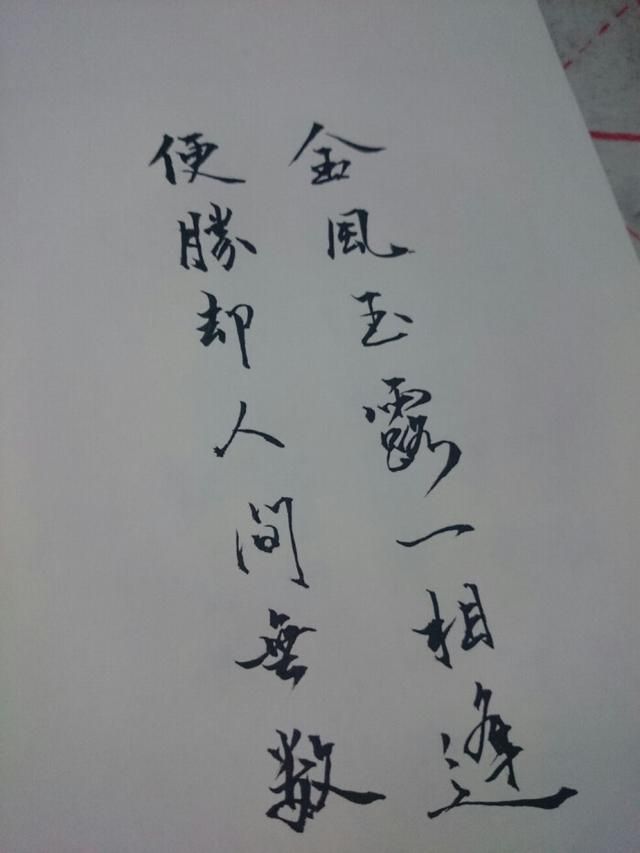 金風玉露一相逢
便勝却人間無數